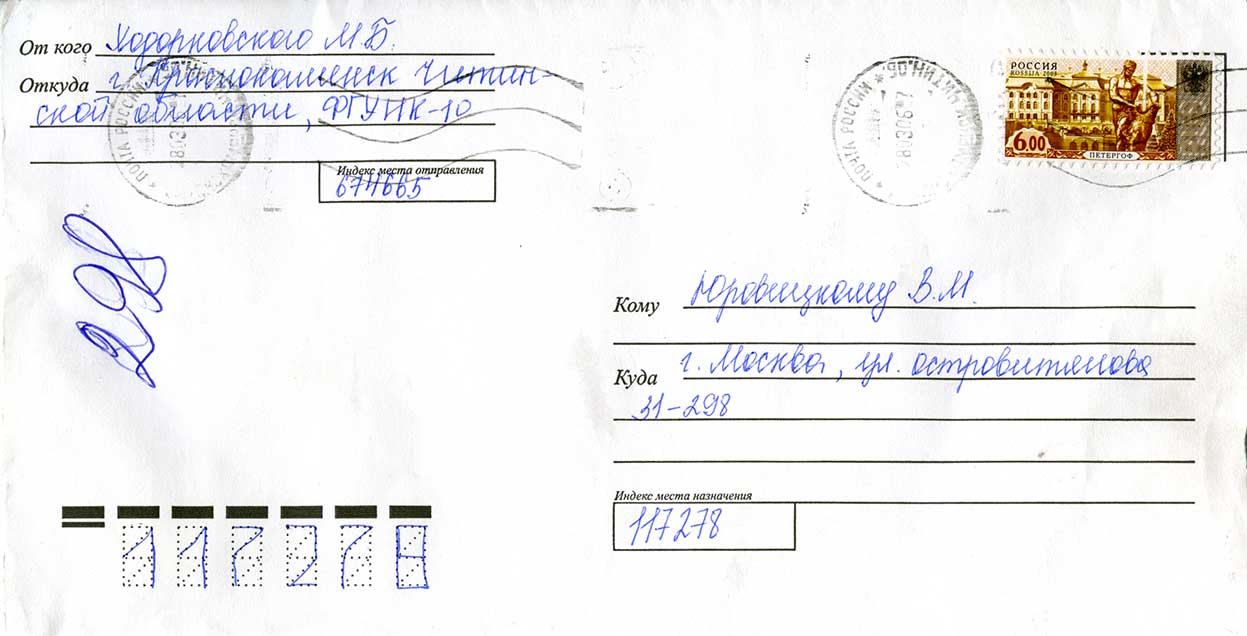 От кого Ходорковского М.Б.
Откуда г. Краснокаменск Читин-
ской области, ФГУ ИК-10
Индекс места отправления
674665
ПОЧТА РОССИИ
ПОЧТА РОССИИ
280306
РОССИЯ
ROSSIJA
6.00
ПЕТЕРГОФ
298
Кому Юровицкому В.М.
Куда г. Москва, ул. островитянова
31-298
Индекс места назначения
117278
117278